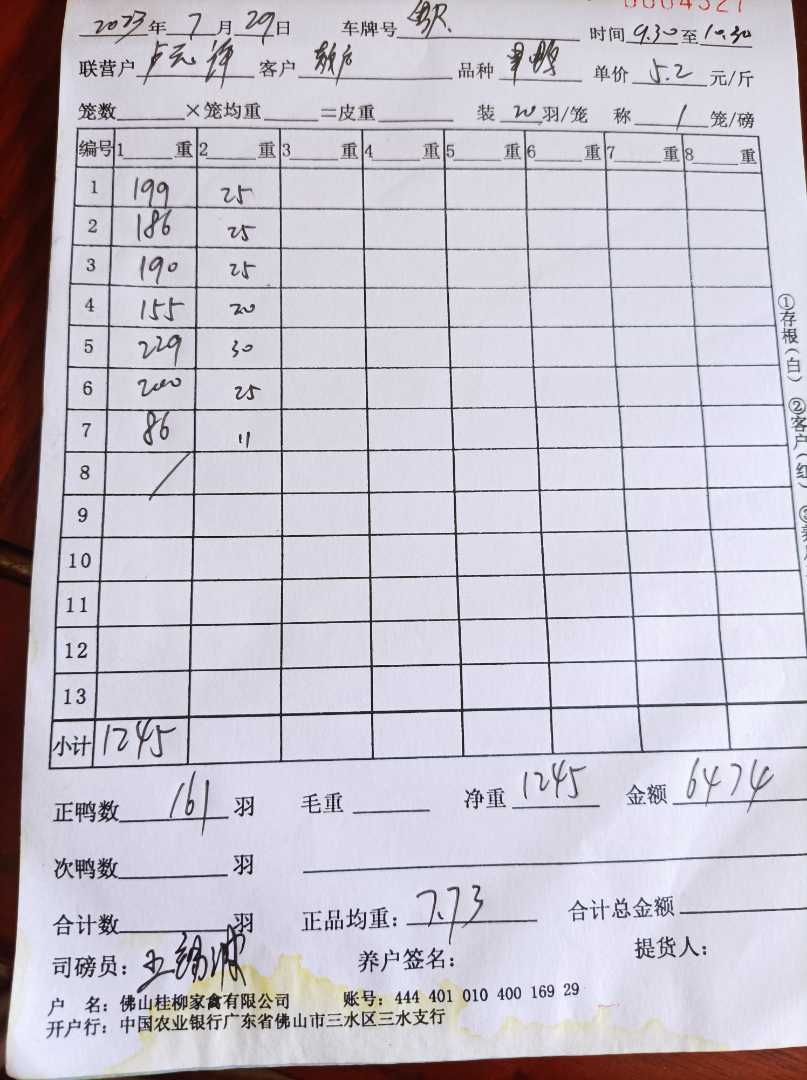 0004527
2023年7月29日 车牌号 时间9.30至10.30
联营户 客户 散户 品种 单价5.2元/斤
笼数____×笼均重____=皮重____ 装20羽/笼 称1笼/磅
编号 1____重 2____重 3____重 4____重 5____重 6____重 7____重 8____重
1 199 25
2 186 25
3 190 25
4 155 20
5 229 30
6 200 25
7 86 11
8 /
9
10
11
12
13
小计 1245
正鸭数161羽 毛重____ 净重1245 金额6474
次鸭数____羽
合计数____羽 正品均重：7.73 合计总金额____
司磅员： 养户签名： 提货人：
户 名：佛山桂柳家禽有限公司 账号：444 401 010 400 169 29
开户行：中国农业银行广东省佛山市三水区三水支行
①存根（白） ②客户（红）